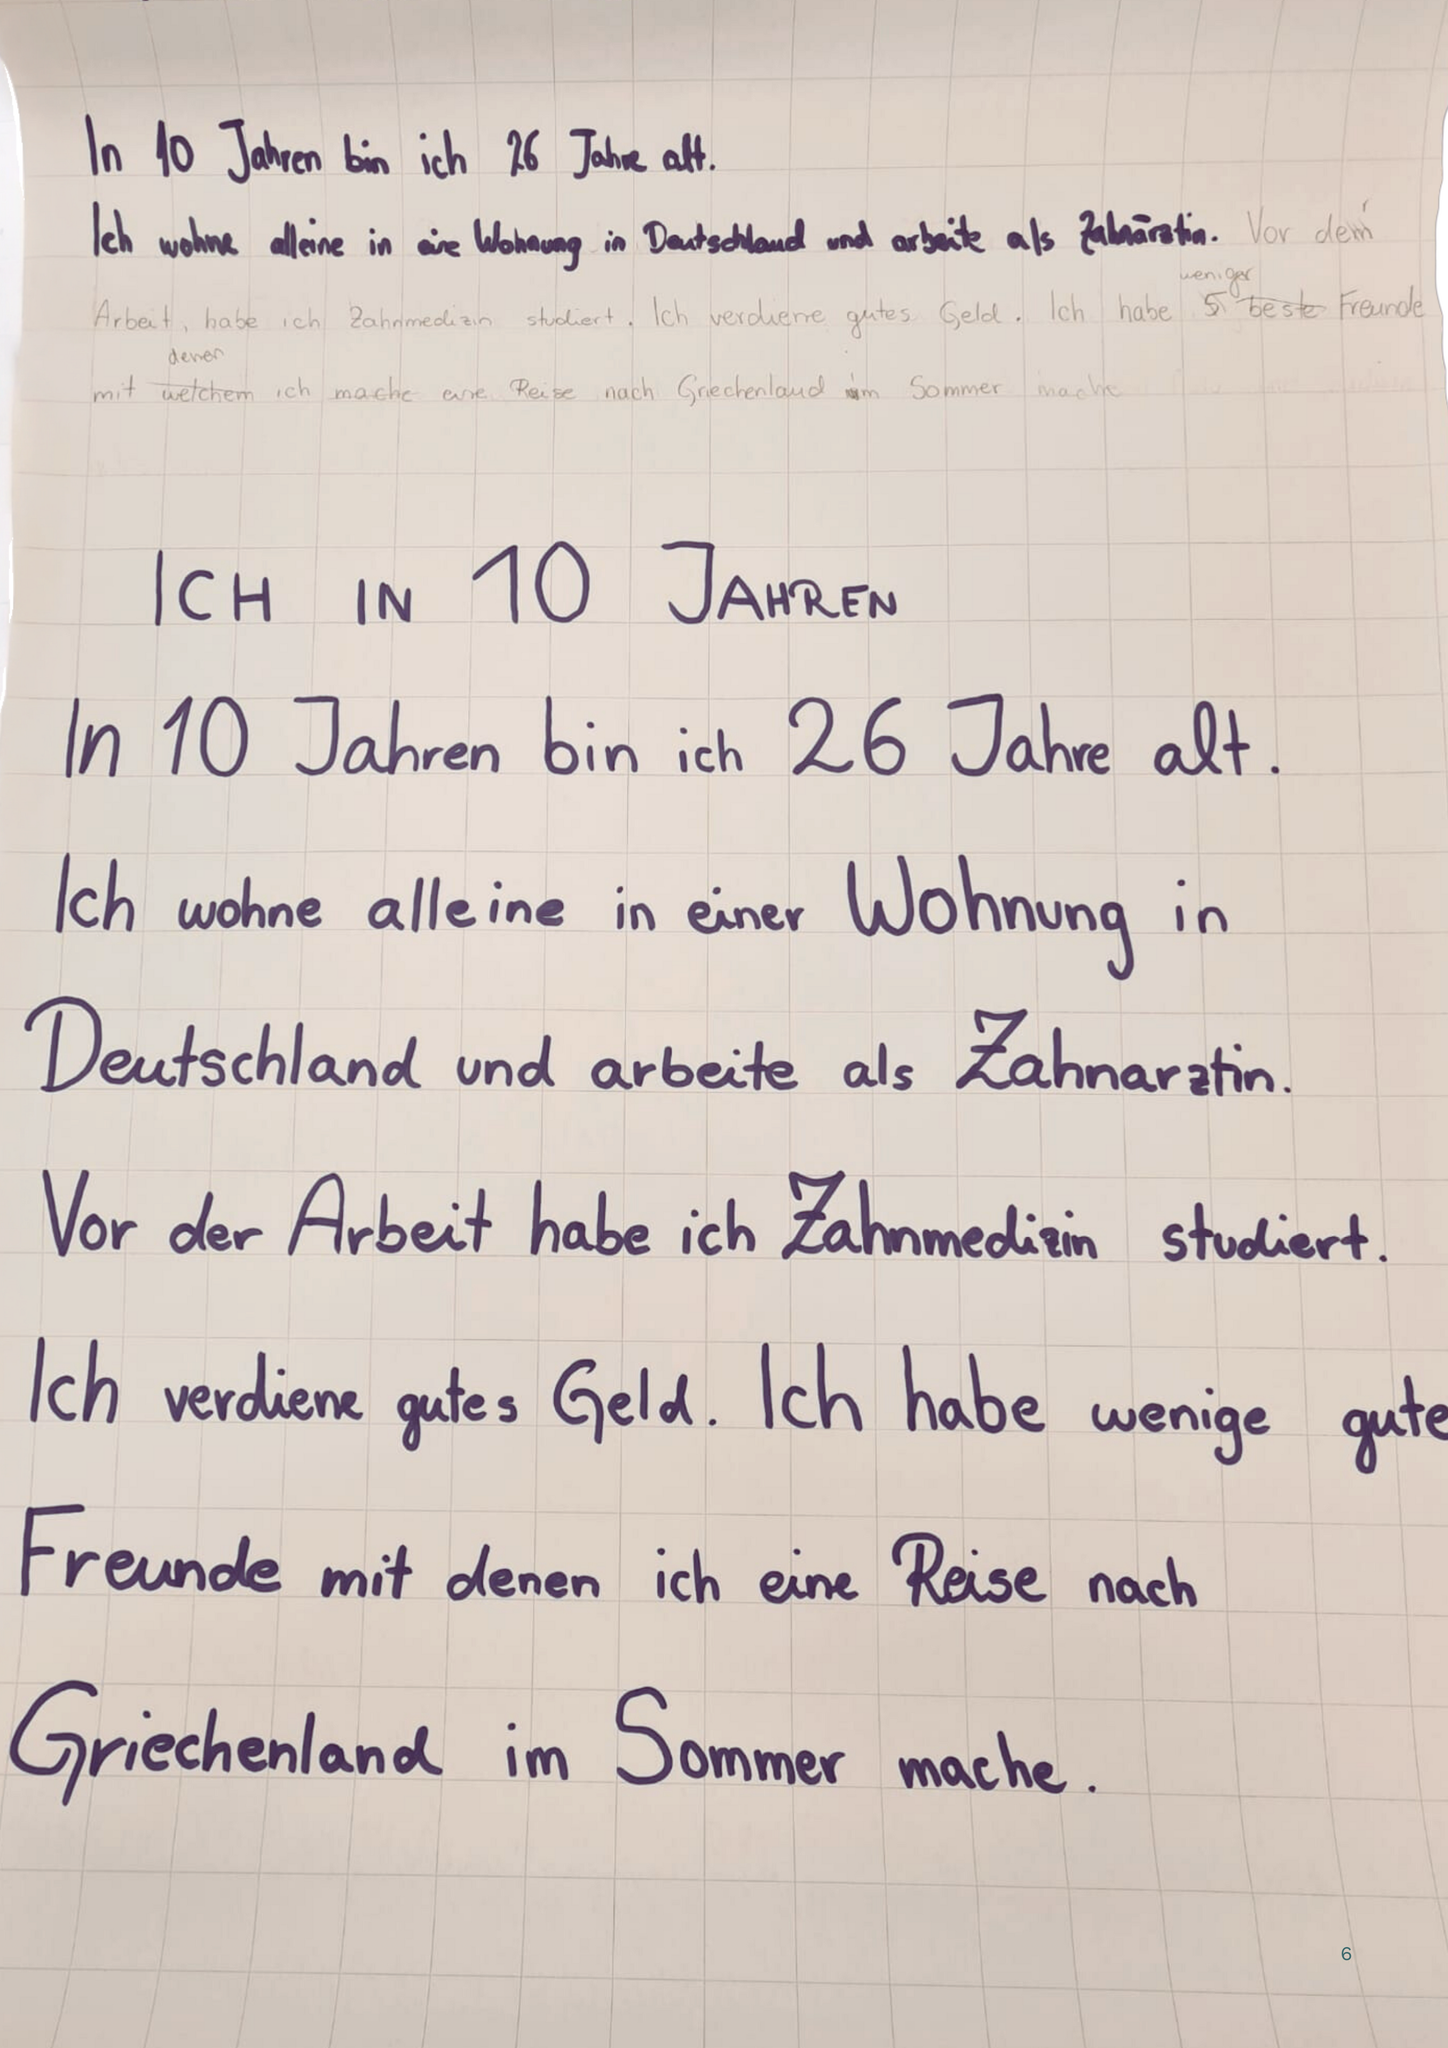 In 10 Jahren bin ich 26 Jahre alt.
Ich wohne alleine in eine Wohnung in Deutschland und arbeite als Zahnärztin. Vor dem
weniger
Arbeit, habe ich Zahnmedizin studiert. Ich verdiene gutes Geld. Ich habe 5 beste Freunde
denen
mit welchem ich mache eine Reise nach Griechenland im Sommer mache
ICH IN 10 JAHREN
In 10 Jahren bin ich 26 Jahre alt.
Ich wohne alleine in einer Wohnung in
Deutschland und arbeite als Zahnarztin.
Vor der Arbeit habe ich Zahnmedizin studiert.
Ich verdiene gutes Geld. Ich habe wenige gute
Freunde mit denen ich eine Reise nach
Griechenland im Sommer mache.
6